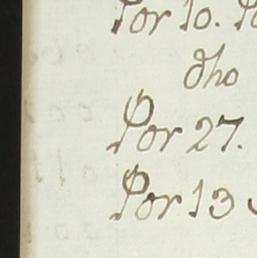 Por 10.
dho
Por 27.
Por 13